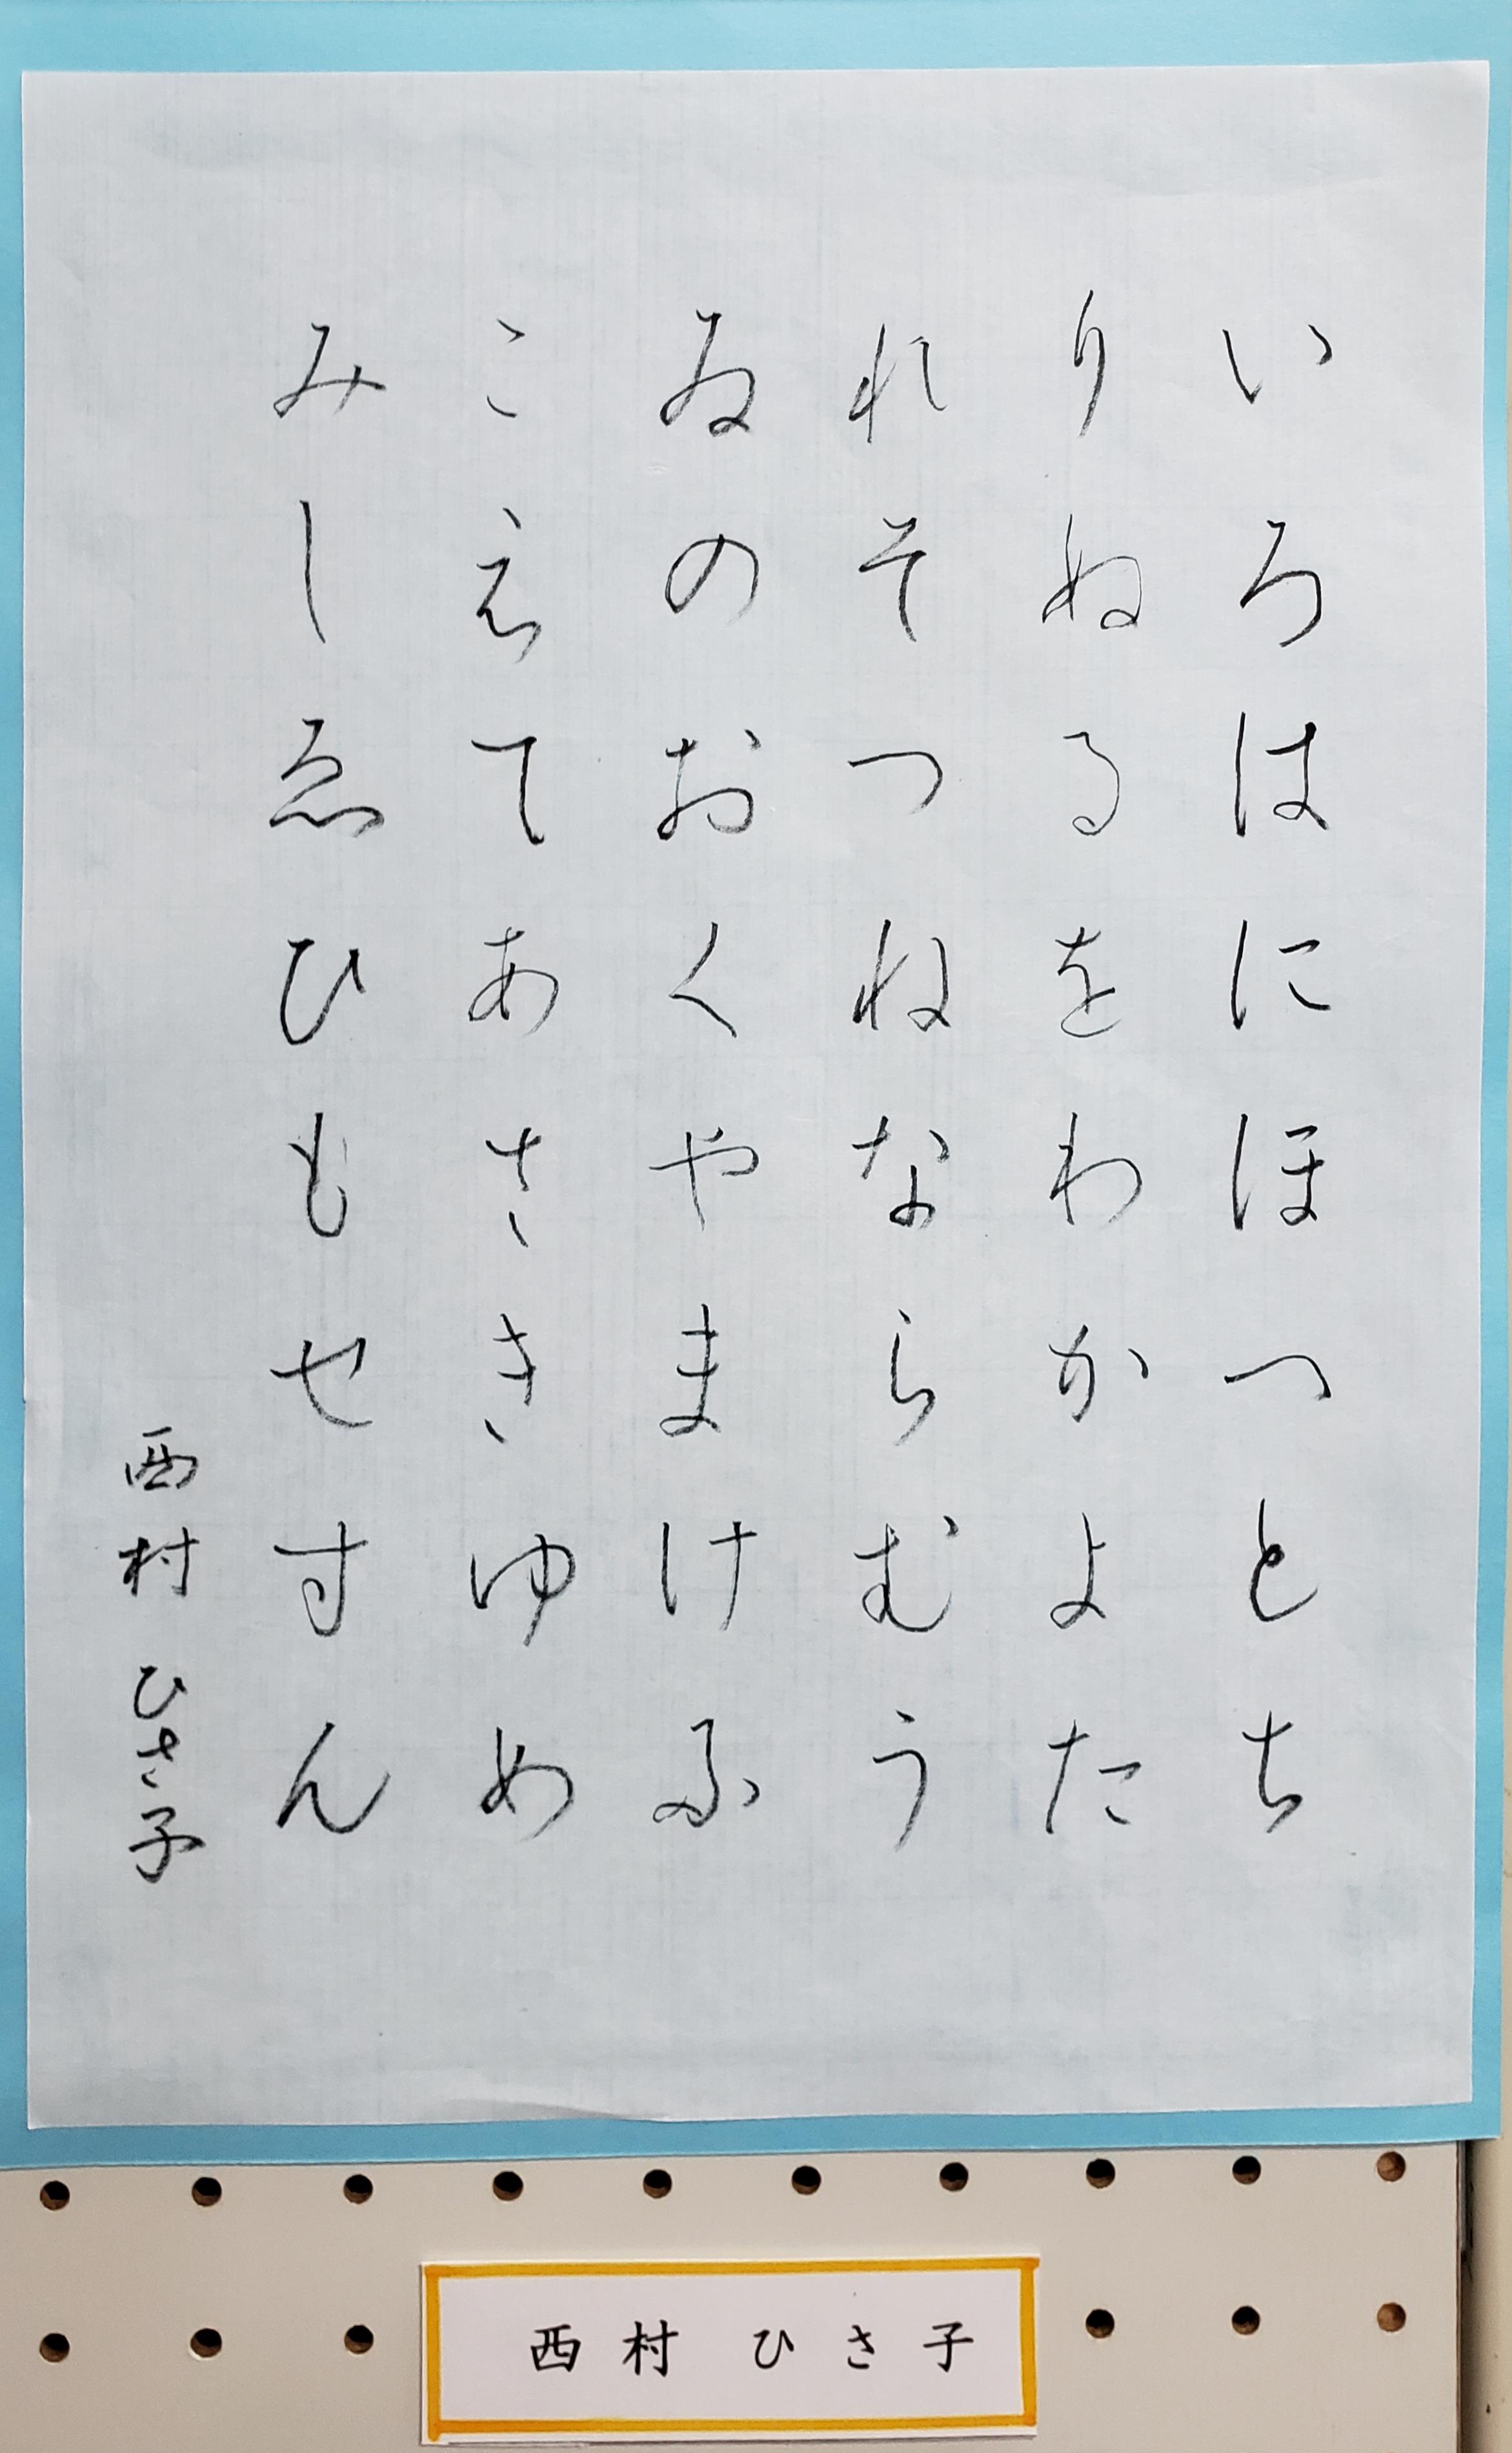 いろはにほへとち
りぬるをわかよた
れそつねならむう
ゐのおくやまけふ
こえてあさきゆめ
みしゑひもせすん
西村ひさ子
西村 ひさ子